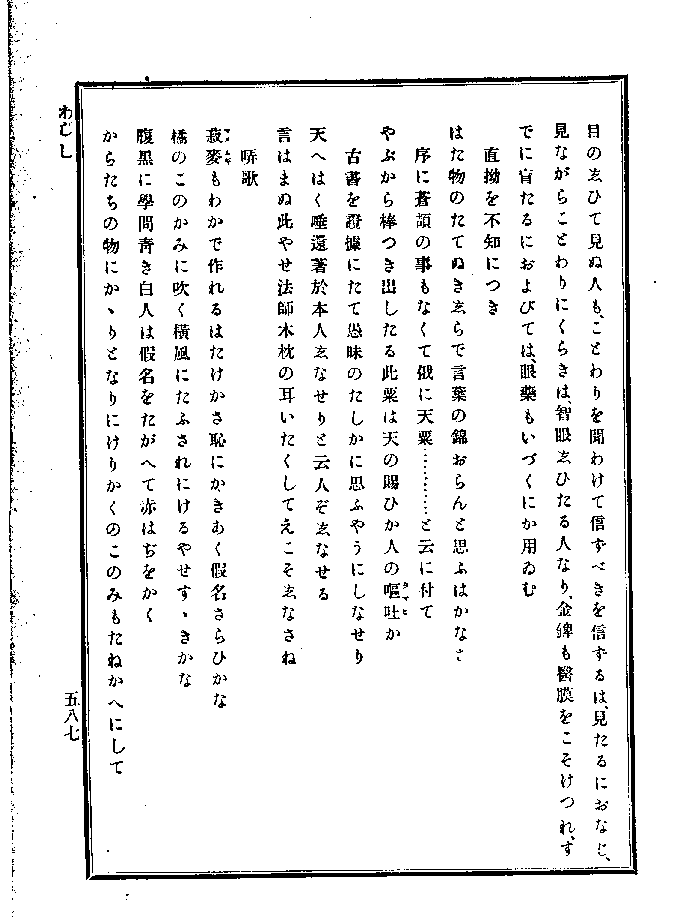 目のゑひて見ぬ人も、ことわりを聞わけて信ずべきを信ずるは、見たるにおなじ、
見ながらことわりにくらきは、智眼ゑひたる人なり、金錍も醫膜をこそけつれ、す
でに盲たるにおよびては、眼藥もいづくにか用ゐむ
直拗を不知につき
はた物のたてぬきゑらで言葉の錦おらんと思ふはかなさ
序に蒼頡の事もなくて俄に天粟…………と云に付て
やぶから棒つき出したる此粟は天の賜ひか人の嘔吐か
古書を證據にたて愚昧のたしかに思ふやうにしなせり
天へはく唾還著於本人ゑなせりと云人ぞゑなせる
言はまぬ此やせ法師木枕の耳いたくしてえこそゑなさね
哢歌
菽麥もわかで作れるはたけかさ恥にかきあく假名さらひかな
橘のこのかみに吹く橫風にたふされにけるやせすヽきかな
腹黑に學問靑き白人は假名をたがへて赤はぢをかく
からたちの物にかヽりとなりにけりかくのこのみもたねかへにして
わじし
五八七